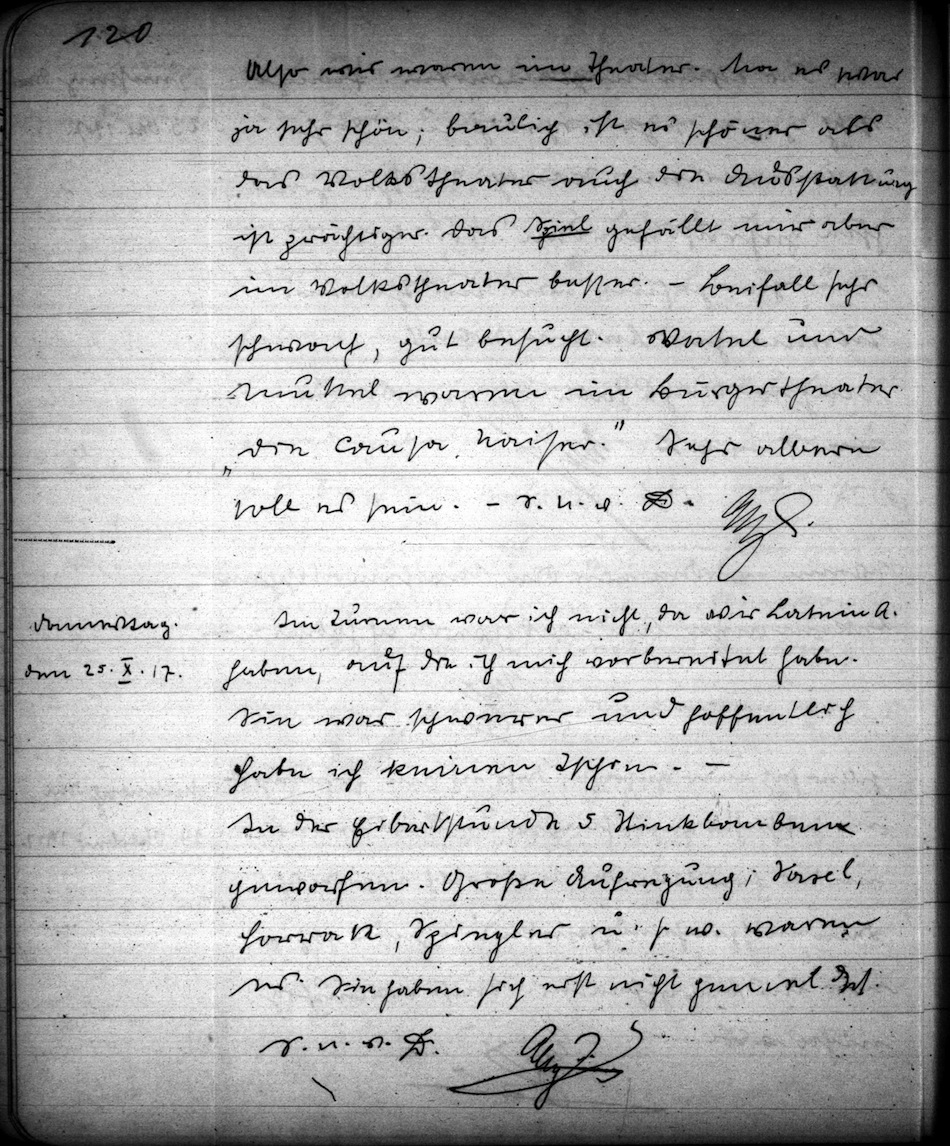 120
Also wir waren im Theater. Na es war
ja sehr schön; baulich ist es schöner als
das Volkstheater auch die Ausstattung
ist prächtiger. Das Spiel gefällt mir aber
im Volkstheater besser. – Beifall sehr
schwach, gut besucht. Vatel und
Muttel waren im Bürgertheater
„die Causa Kaiser." Sehr albern
soll es sein. – S. u. s. D.
Donnerstag.
den 25. X. 17.
Im Turnen war ich nicht, da wir Latein A.
haben, auf die ich mich vorbereitet habe.
Sie war schwerer und hoffentlich
habe ich keinen
In der stunde 5 Stinkbomben
geworfen. Große Aufregung;
Spiegler u. s. w. waren
es. Sie haben sich erst nicht gemeldet.
S. u. s. D.